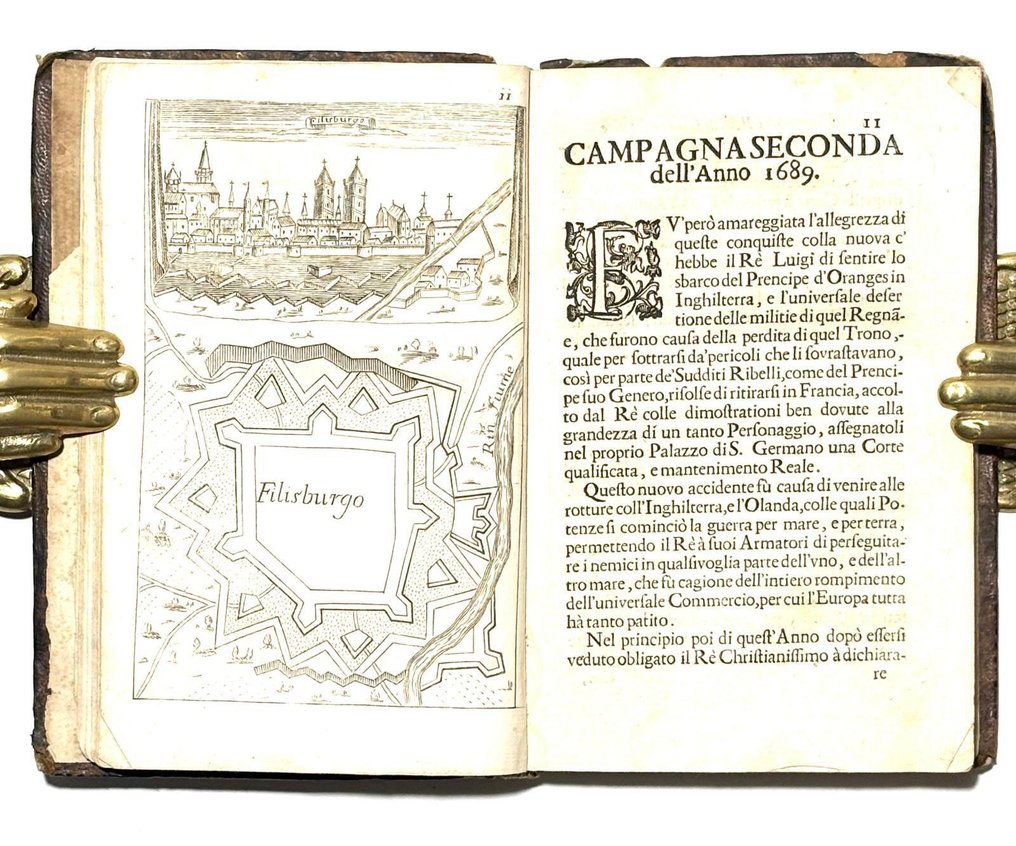 11
Filisburgo
Rin Fiume
Filisburgo
11
CAMPAGNA SECONDA
dell'Anno 1689.
FV' però amareggiata l'allegrezza di
queſte conquiſte colla nuova c'
hebbe il Rè Luigi di ſentire lo
sbarco del Prencipe d'Oranges in
Inghilterra, e l'univerſale deſer
tione delle militie di quel Regnã-
e, che furono cauſa della perdita di quel Trono,-
quale per ſottrarſi da'pericoli che li ſovraſtavano,
così per parte de'Sudditi Ribelli, come del Prenci-
pe ſuo Genero, riſolſe di ritirarſi in Francia, accol-
to dal Rè colle dimoſtrationi ben dovute alla
grandezza di un tanto Perſonaggio, aſſegnatoli
nel proprio Palazzo di S. Germano una Corte
qualificata, e mantenimento Reale.
Queſto nuovo accidente fù cauſa di venire alle
rotture coll'Inghilterra, e l'Olanda, colle quali Po-
tenze ſi cominciò la guerra per mare, e per terra,
permettendo il Rè à ſuoi Armatori di perſeguita-
re i nemici in qualſivoglia parte dell'vno, e dell'al-
tro mare, che fù cagione dell'intiero rompimento
dell'univerſale Commercio, per cui l'Europa tutta
hà tanto patito.
Nel principio poi di queſt'Anno dopò eſſerſi
veduto obligato il Rè Chriſtianiſſimo à dichiara-
re